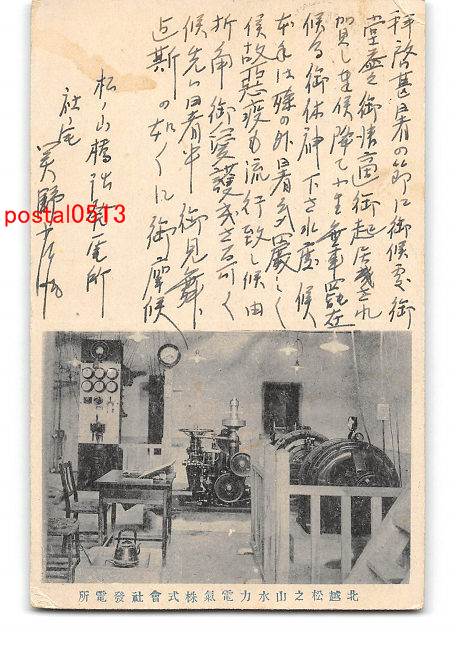 拝啓甚暑の節に御候処御
堂益々御清適御起居遊され
賀し奉候降て小生無事罷在
候間御休神下され度候
本年は殊の外暑気厳しく
候故悪疫も流行致し候由
折角御愛護遊さる可く
候先は暑中御見舞
迄斯の如くに御座候
松ノ山橋詰発電所
社宅
postal0513
北越松之山水力電氣株式會社發電所